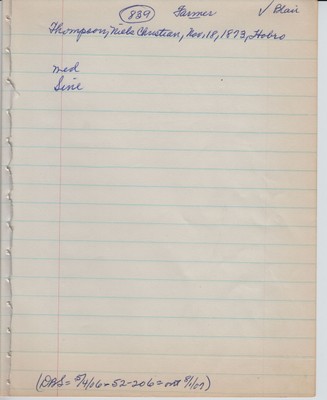 839 Farmer ✓ Blair
Thompson, Niels Christian, Nov. 18, 1873, Hobro
med
Sine
(DAS = 5/4/06 - 52-206 = not 8/1/07)